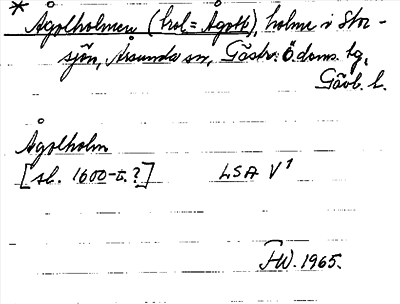 * Ågolholmen (hol = Ågott), holme i Stor-
sjön, Årsunda sn, Gästr. Ö. doms. tg,
Gävl. l.
Ågolholm
[sl. 1600-t.?] LSA V¹
FW. 1965.